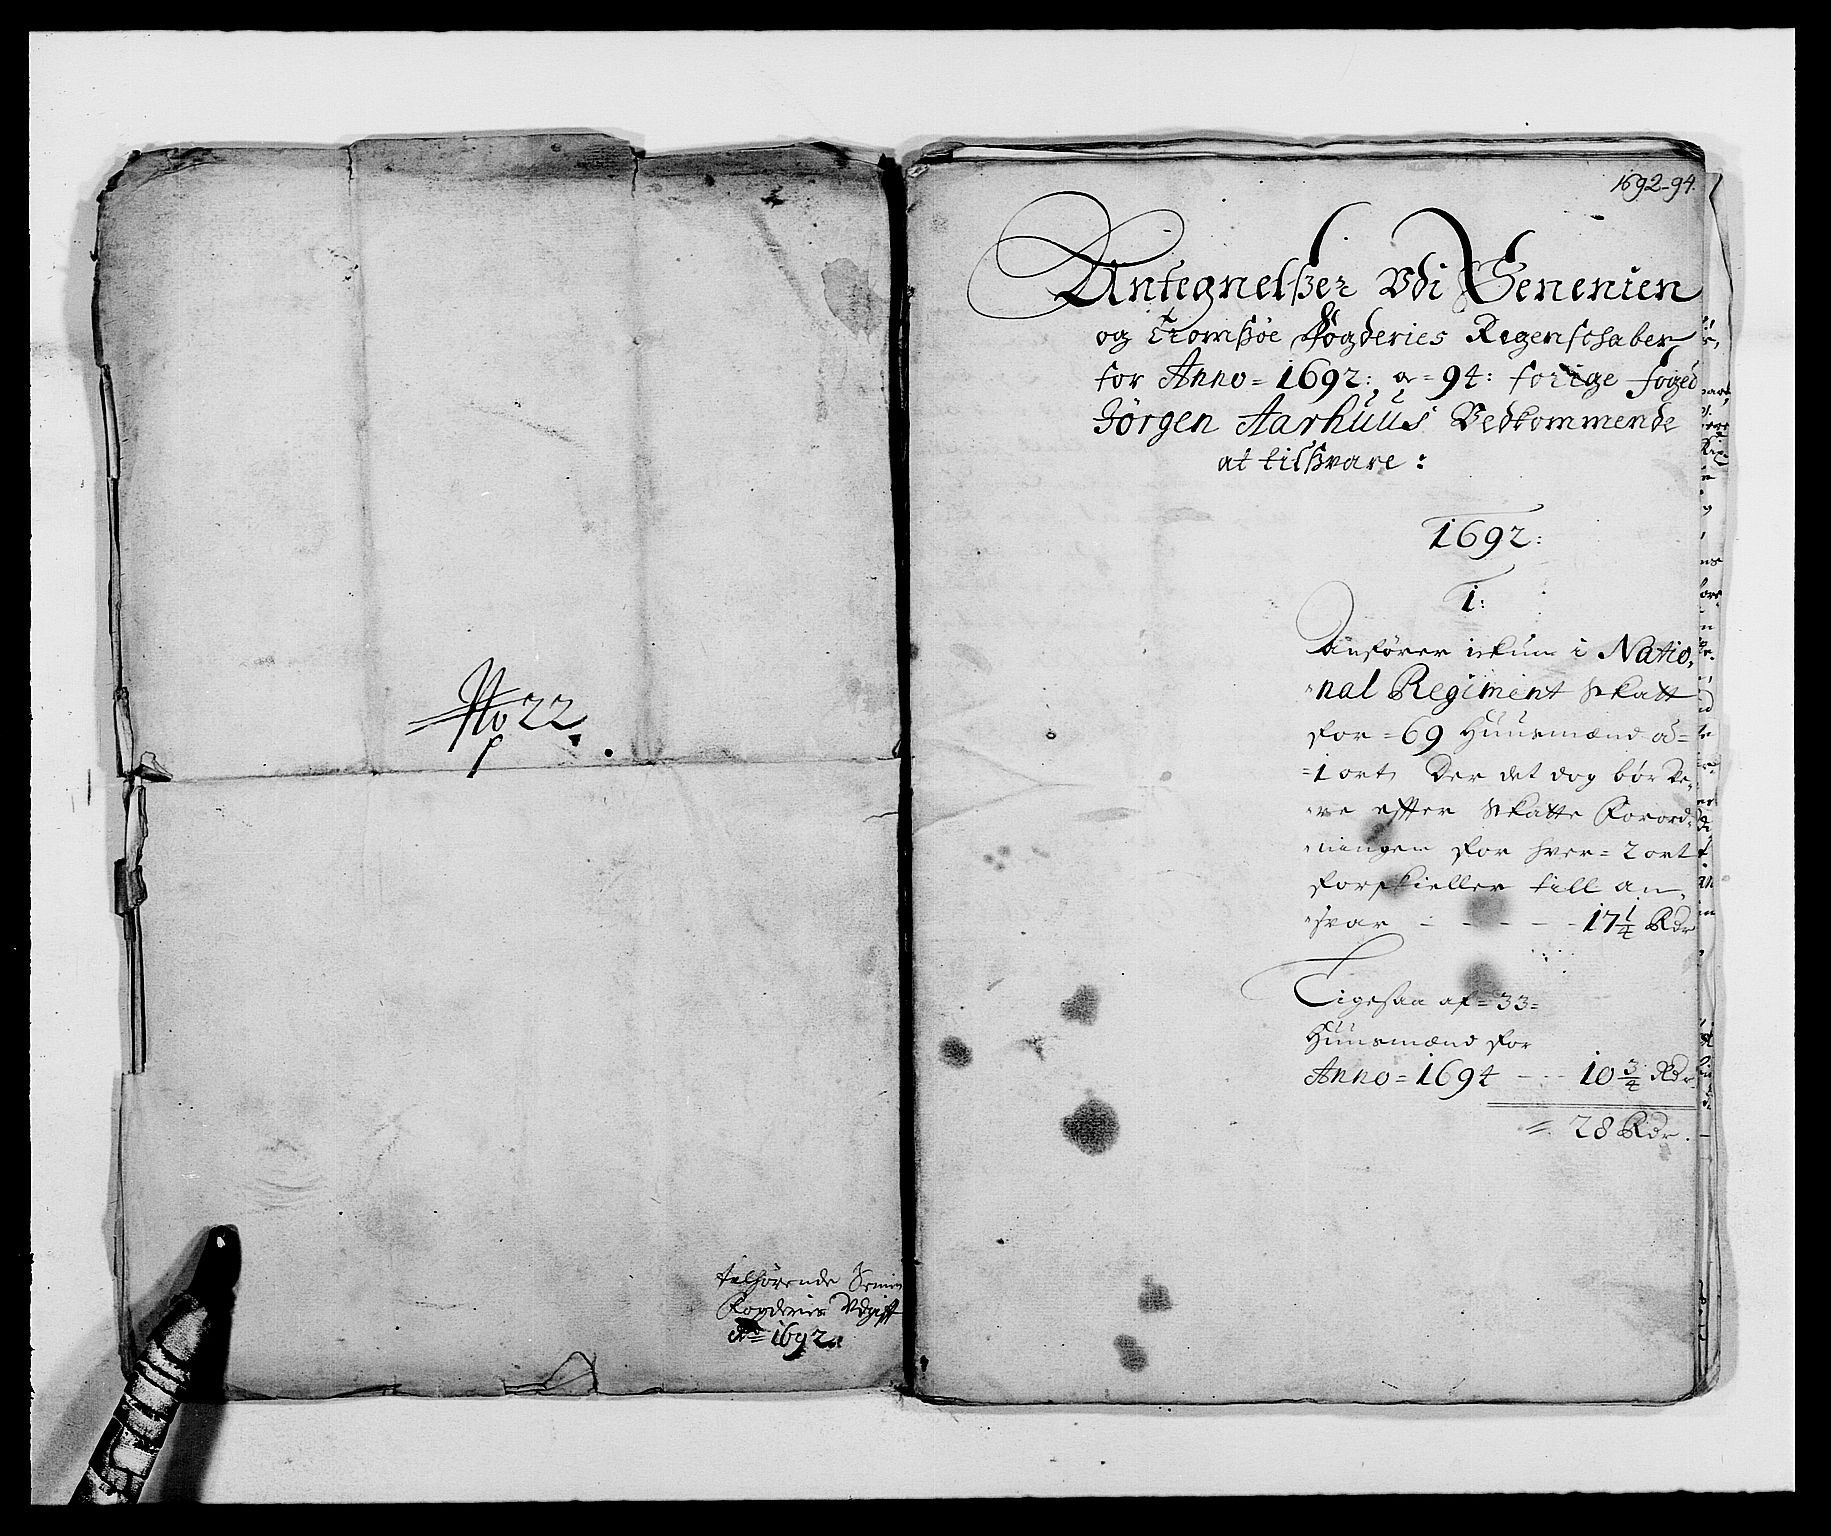 No 22
tilhørende Senien
Fogderies Udgifft
Ao 1692.
1692-94.
Antegnelßer Vdi Senenien
og Tromßøe Fogderies Regenschaber
for Anno = 1692: a = 94: forige foged
Jørgen Aarhuus Vedkommende
at tilßvare:
1692:
1:
Anfører ickun i Natio,
nal Regiment Skatt
for = 69 Huusmænd a =
= 1 ort, Der det dog bør Ve,
re effter Skatte Forord,
ningen for hver = 2 ort
forskieller till an,
svar - - - - 17 1/4 Rdr
Ligesaa af = 33 =
Huusmænd for
Anno = 1694 - - - 10 3/4 Rdr
= 28 Rdr.